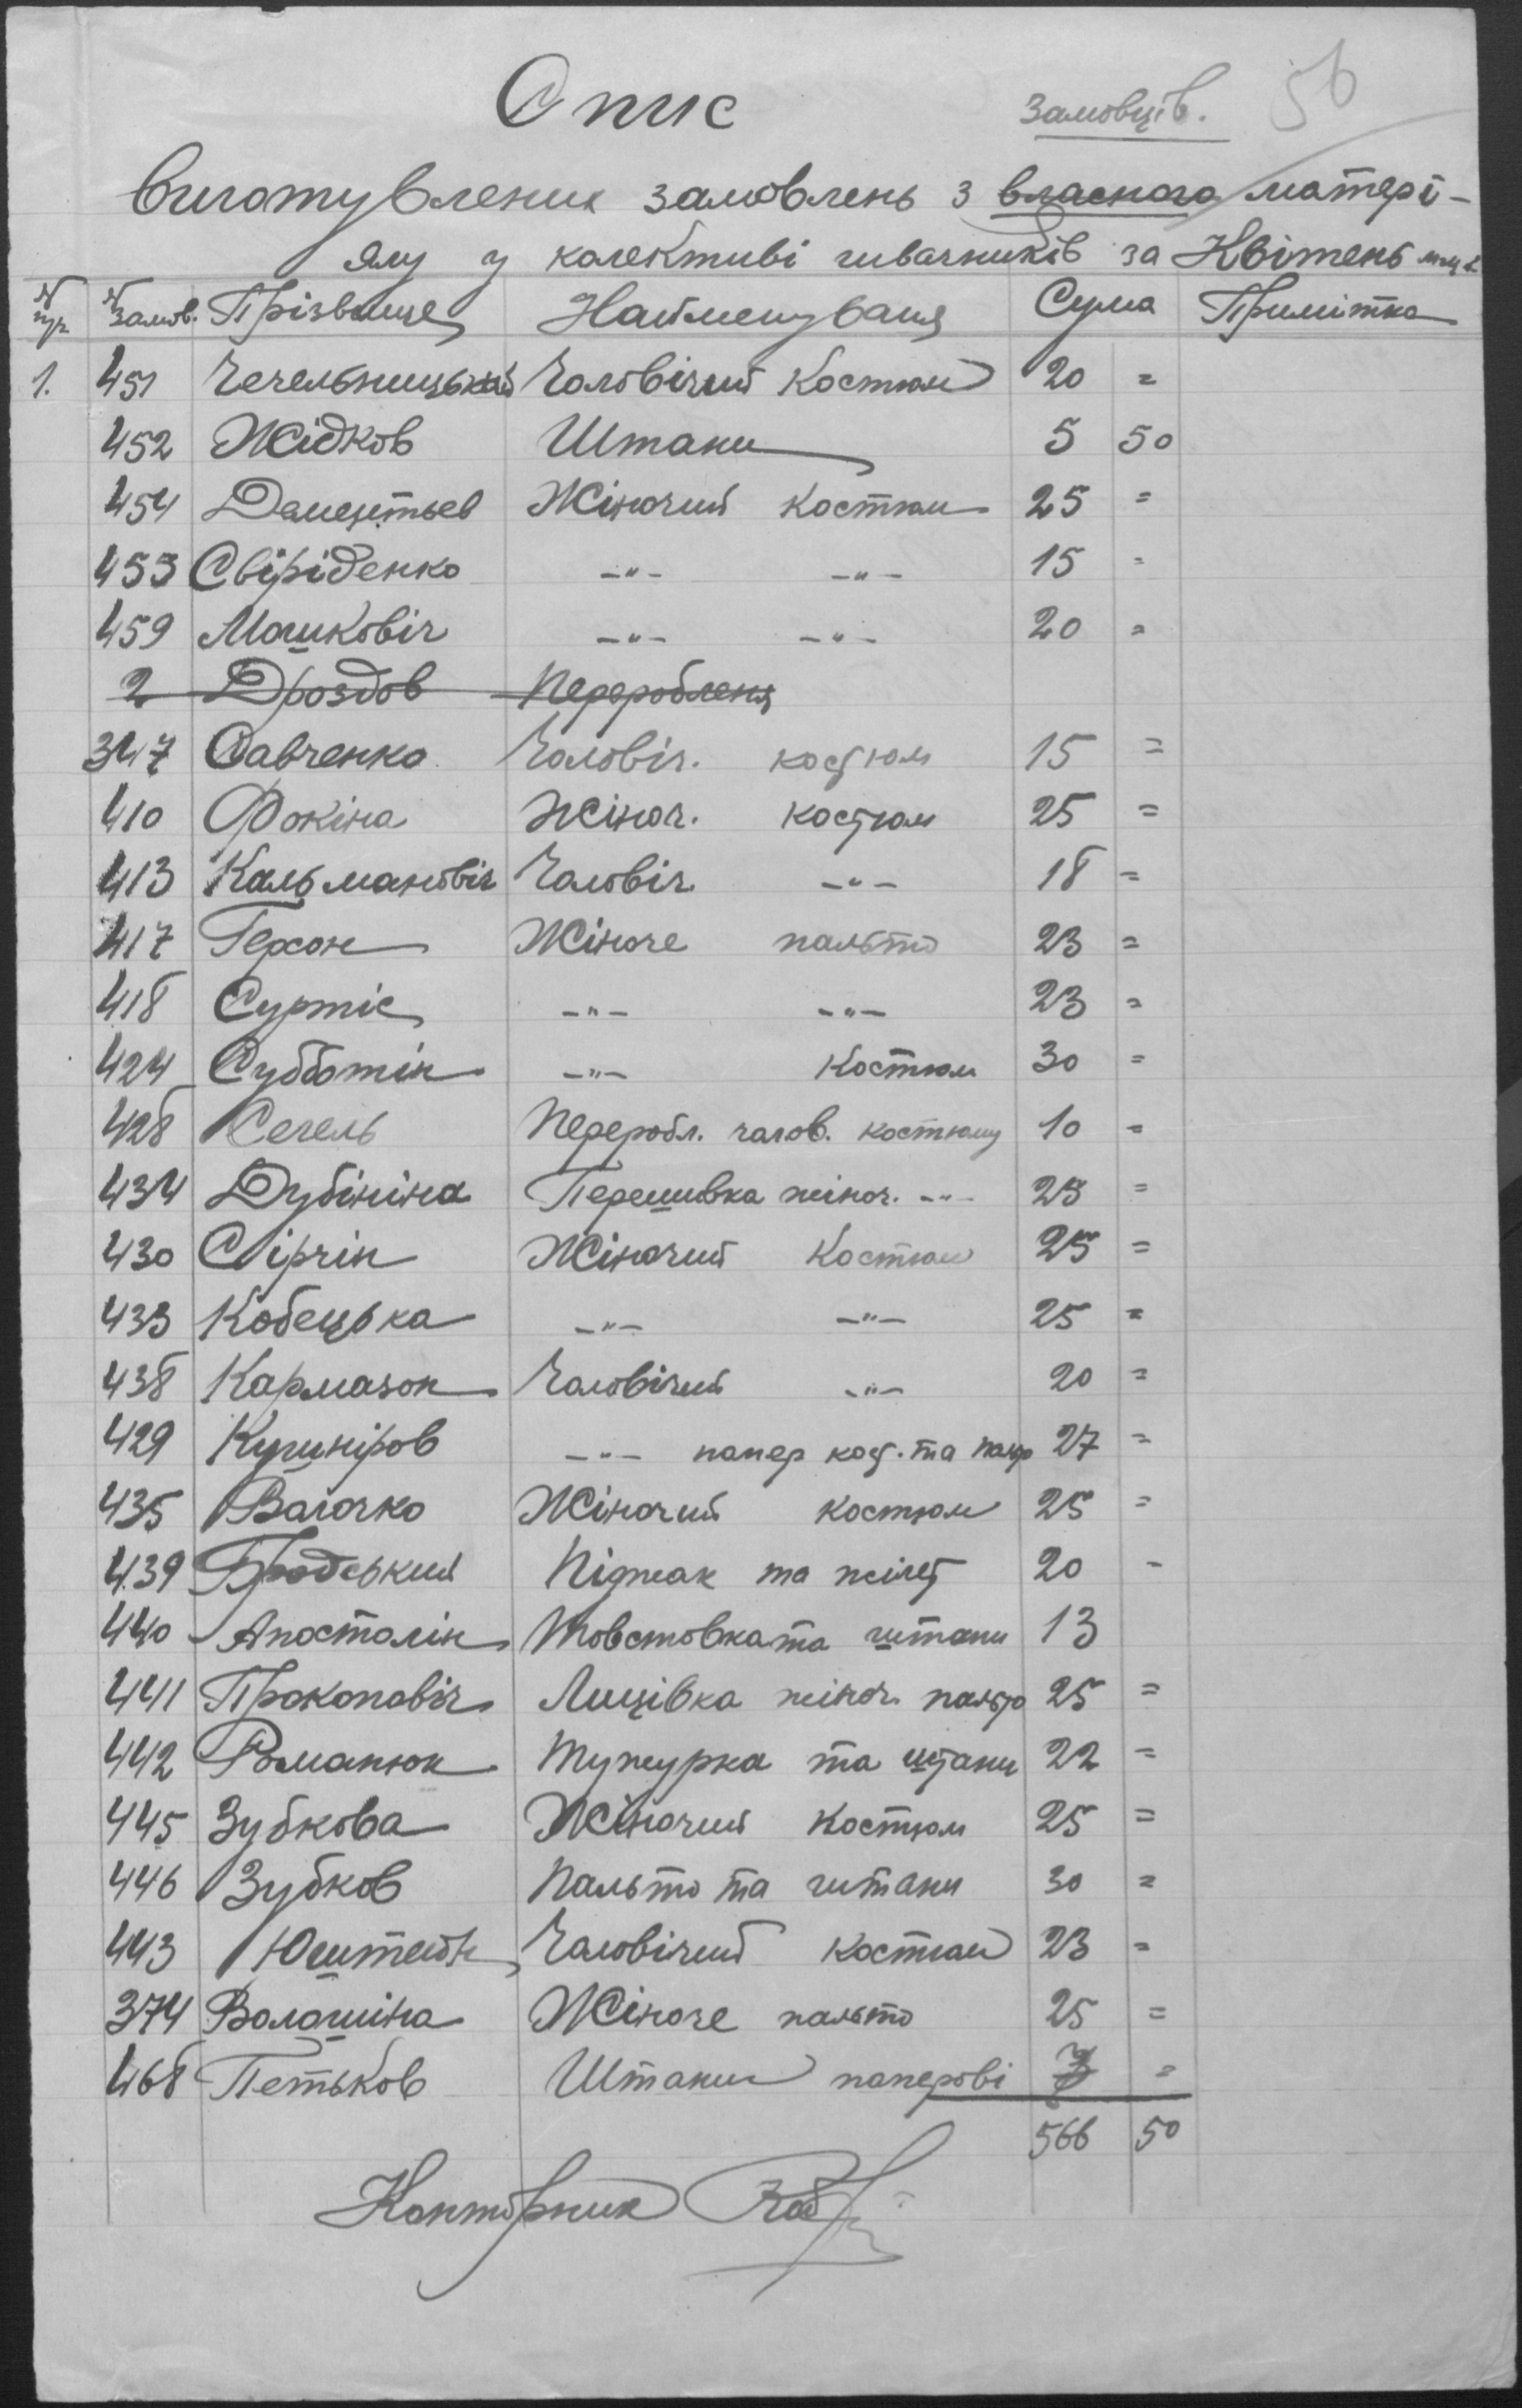 Опис
Замовців. 56
виготувлених замовлень з власного матері-
ялу у колективі швачників за Квітень м-ць
№ пр. № замов. Прізвище Найменуваня Сума Примітка
1. 451 Чечельницький Чоловічий Костюм 20 =
452 Жідков Штани 5 50
454 Дементьев Жіночий Костюм 25 =
453 Свіріденко -"- -"- 15 =
459 Машковіч -"- -"- 20 =
2 Дроздов Перероблення
347 Савченко Чоловіч. костюм 15 =
410 Фокіна Жіноч. костюм 25 =
413 Кальмановіч Чоловіч. -"- 18 =
417 Герсон Жіноче пальто 23 =
418 Суртіс -"- -"- 23 =
424 Субботін -"- Костюм 30 =
428 Сегель Переробл. чолов. костюму 10 =
434 Дубініна Перешивка жіноч. -"- 25 =
430 Сірчін Жіночий Костюм 25 =
433 Кобецька -"- -"- 25 =
438 Кармазон Чоловічий -"- 20 =
429 Кушніров -"- папер кост. та 27 =
435 Волочко Жіночий костюм 25 =
439 Бродський Піджак та жілет 20 -
440 Апостолін Товстовка та штани 13
441 Прокопавіч Лицівка жіноч. пальто 25 =
442 Романюк Тужурка та штани 22 =
445 Зубкова Жіночий Костюм 25 =
446 Зубков Пальто та штани 30 =
443 Юштейн Чоловічий костюм 23 =
374 Волошіна Жіноче пальто 25 =
468 Петьков Штани паперові 7 =
566 50
Конторник